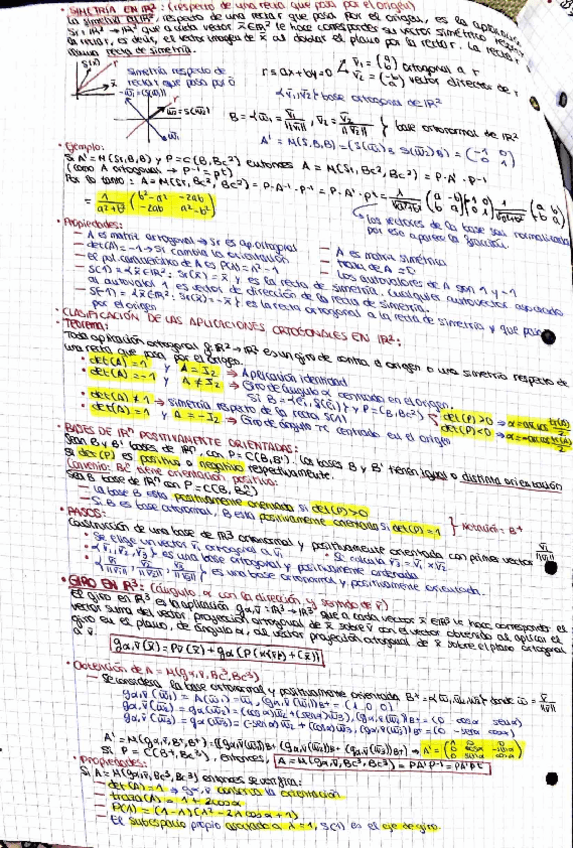 • SIMETRÍA EN IR²: (respecto de una recta que pasa por el origen)
La simetría en IR², respecto de una recta r que pasa por el origen, es la aplicación
Sr: IR² → IR² que a cada vector x̄ ∈ IR² le hace corresponder su vector simétrico respecto
la recta, es decir, el vector imagen de x̄ al doblar el plano por la recta r. La recta r
llama recta de simetría.
simetría respecto de
recta r que pasa por 0
r ≡ ax+by=0
v̄1 = (a b) ortogonal a r
v̄2 = (-b a) vector director de r
{v̄1, v̄2} base ortogonal de IR²
B = {w̄1 = v̄1/||v̄1||, w̄2 = v̄2/||v̄2||} base ortonormal de IR²
A' = M(S,B,B) = (S(w̄1)B S(w̄2)B) = (-1 0 0 1)
• Ejemplo:
Si A' = M(Sr,B,B) y P = C(B,Bc²) entonces A = M(Sr,Bc²,Bc²) = P·A'·P⁻¹
(como A ortogonal → P⁻¹ = Pt)
Por lo tanto: A = M(Sr,Bc²,Bc²) = P·A'·P⁻¹ = P·A'·Pt
= 1/(a²+b²) (b²-a² -2ab -2ab a²-b²)
los vectores de la base son normalizados
por eso aparece la fracción.
• Propiedades:
— A es matriz ortogonal → Sr es ap. ortogonal
— A es matriz simétrica
— det(A) = -1 → Sí cambia la orientación
— traza de A = 0
— El pol. característico de A es P(λ) = λ²-1
— Los autovalores de A son 1 y -1
— S(1) = {x̄ ∈ IR²: Sr(x̄) = x̄} y es la recta de simetría. Cualquier autovector asociado
al autovalor 1 es vector de dirección de la recta de simetría.
— S(-1) = {x̄ ∈ IR²: Sr(x̄) = -x̄} es la recta ortogonal a la recta de simetría y que pasa
por el origen
• CLASIFICACIÓN DE LAS APLICACIONES ORTOGONALES EN IR²:
Teorema:
Toda aplicación ortogonal g: IR² → IR² es un giro de centro el origen o una simetría respecto de
una recta que pasa por el origen.
• det(A) = 1 y A = I2 → Aplicación identidad
• det(A) = -1 y A ≠ I2 → Giro de ángulo α centrado en el origen.
det(P) > 0
det(P) < 0
• det(A) ≠ 1 → Simetría respecto de la recta S(1)
• det(A) = 1 y A = -I2 → Giro de ángulo π centrado en el origen
• BASES DE IRⁿ POSITIVAMENTE ORIENTADAS:
Sean B y B' bases de IRⁿ con P = C(B,B'). Las bases B y B' tienen igual o distinta orientación
si det(P) es positivo o negativo respectivamente.
Convenio: Bc tiene orientación positiva:
Sea B base de IRⁿ con P = C(B,Bc)
— La base B está positivamente orientada si det(P) > 0
— Si B es base ortonormal, B está positivamente orientada si det(P) = 1 } Notación: B⁺
• PASOS:
Construcción de una base de IR3 ortonormal y positivamente orientada con primer vector v̄1/||v̄1||
• Se elige un vector v̄2 ortogonal a v̄1
• Se calcula v̄3 = v̄1 × v̄2
• {v̄1, v̄2, v̄3} es una base ortogonal y positivamente orientada
• {v̄1/||v̄1||, v̄2/||v̄2||, v̄3/||v̄3||} es una base ortonormal y positivamente orientada.
• GIRO EN IR³: (ángulo α con la dirección y sentido de v̄)
El giro en IR³ es la aplicación gα,v̄: IR³ → IR³ que a cada vector x̄ ∈ IR³ le hace corresponder el
vector suma del vector proyección ortogonal de x̄ sobre v̄ con el vector obtenido al aplicar el
giro en el plano, de ángulo α, al vector proyección ortogonal de x̄ sobre el plano ortogonal
a v̄.
• Obtención de A = M(gα,v̄,Bc³,Bc³)
— Se considera la base ortonormal y positivamente orientada B⁺ = {w̄1, w̄2, w̄3} donde w̄1 = v̄/||v̄||
gα,v̄(w̄1) = w̄1, (gα,v̄(w̄1))B⁺ = (1,0,0)
gα,v̄(w̄2) = gα(w̄2) = (cos α)w̄2 + (sen α)w̄3, (gα,v̄(w̄2))B⁺ = (0 cos α sen α)
gα,v̄(w̄3) = gα(w̄3) = (-sen α)w̄2 + (cos α)w̄3, (gα,v̄(w̄3))B⁺ = (0 -sen α cos α)
A' = M(gα,v̄,B⁺,B⁺) = ((gα,v̄(w̄1))B⁺ (gα,v̄(w̄2))B⁺ (gα,v̄(w̄3))B⁺) → A' = (1 0 0 0 cos α -sen α 0 sen α cos α)
Si P = C(B⁺,Bc³), entonces, A = M(gα,v̄,Bc³,Bc³) = PA'P⁻¹ = PA'Pt
• Propiedades:
Si A = M(gα,v̄,Bc³,Bc³) entonces se verifica:
— det(A) = 1 → gα,v̄ conserva la orientación
— traza(A) = 1 + 2cos α
— P(λ) = (λ-1)(λ²-2λcos α+1)
— El subespacio propio asociado a λ=1, S(1) es el eje de giro.